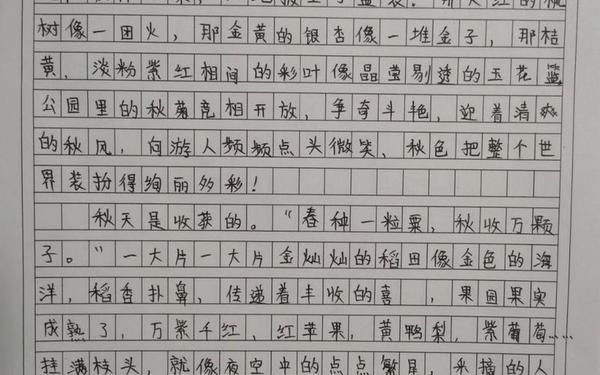 树像一团火，那金黄的银杏像一堆金子，那桔
黄、淡粉紫红相间的彩叶像晶莹剔透的玉花篮
公园里的秋菊竞相开放，争奇斗艳，迎着清爽
的秋风，向游人频频点头微笑，秋色把整个世
界装扮得绚丽多彩！
秋天是收获的。“春种一粒粟，秋收万颗
子。”一大片一大片金灿灿的稻田像金色的海
洋，稻香扑鼻，传递着丰收的喜，果园果实
成熟了，万紫千红，红苹果，黄鸭梨，紫葡萄……
挂满枝头，就像夜空中的点点繁星，采摘的人